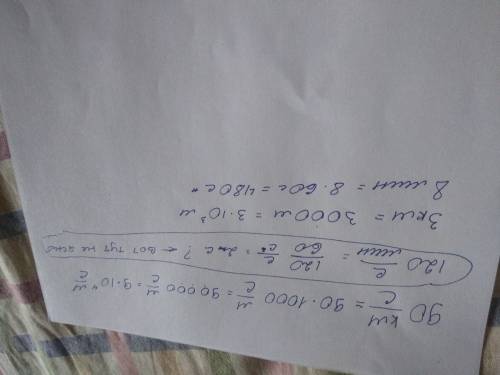 90 км/с = 90·1000 м/с = 90 000 м/с = 9·10⁴ м/с
120 с/мин = 120/60 с/с = 2 с ? ← вот тут не ясно
3 км = 3000 м = 3·10³ м
8 мин = 8·60 с = 480 с